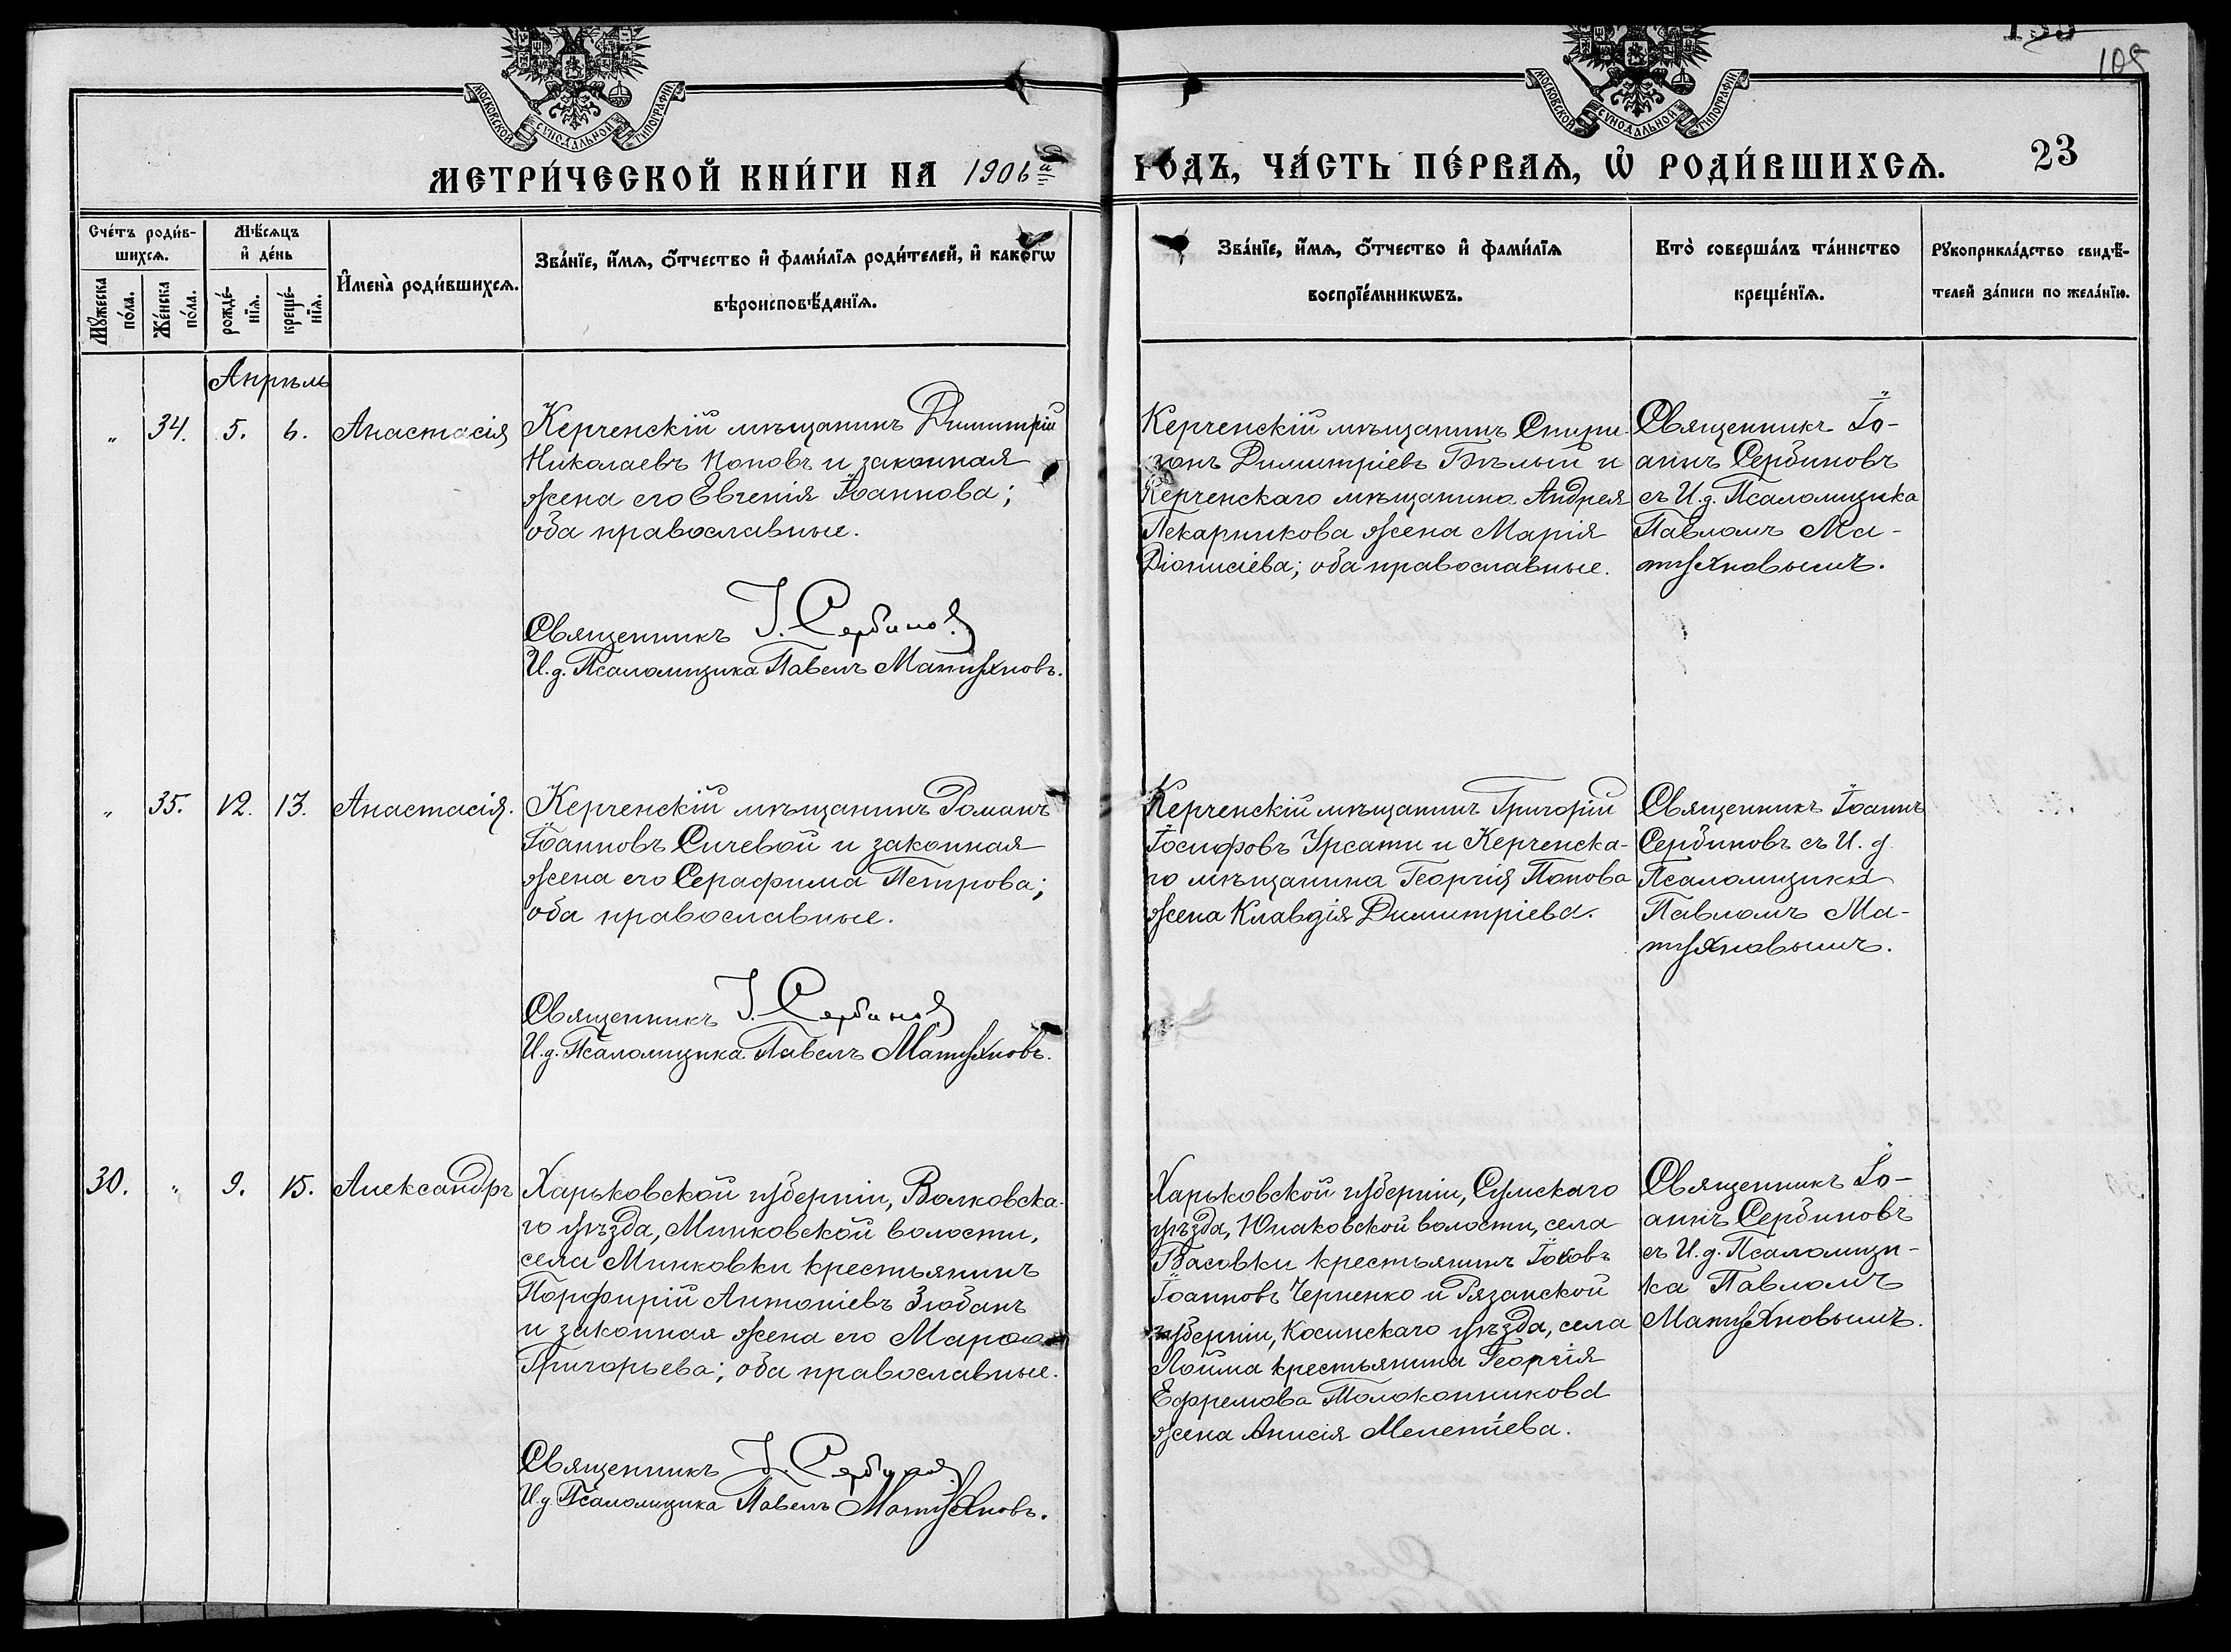 МОСКОВСКОЙ СѴНОДАЛЬНОЙ ТИПОГРАФІИ
МОСКОВСКОЙ СѴНОДАЛЬНОЙ ТИПОГРАФІИ
109
МЕТРИ́ЧЕСКОЙ КНИ́ГИ НА 1906 го́дъ, ЧА́СТЬ ПЕ́РВАѦ, Ѽ РОДИ́ВШИХСѦ. 23
Сче́тъ роди́в-
шихсѧ.
Мꙋ́жеска по́ла.
Же́нска по́ла.
Мѣ́сѧцъ
и҆ де́нь
рожде́-
нїѧ.
креще́-
нїѧ.
И҆мена̀ роди́вшихсѧ.
Зва́нїе, и҆́мѧ, ѻ҆́тчество и҆ фами́лїѧ роди́телей, и҆ како́гѡ
вѣроисповѣ́данїѧ.
Зва́нїе, и҆́мѧ, ѻ҆́тчество и҆ фами́лїѧ
воспрїе́мникѡвъ.
Кто̀ соверша́лъ та́инство
креще́нїѧ.
Рꙋкоприкла́дство свидѣ́-
телей за́писи по жела́нїю.
Апрѣль
" 34. 5. 6. Анастасія
Керченскій мѣщанинъ Димитрій
Николаевъ Поповъ и законная
жена его Евгенія Іоаннова;
оба православные.
Священникъ І. Сербинов
И.д. Псаломщика Павелъ Матухновъ.
Керченскій мѣщанинъ Спири-
донъ Димитріевъ Бѣлый и
Керченскаго мѣщанина Андрея
Пекарникова жена Марія
Діонисіева; оба православные.
Священникъ Іо-
аннъ Сербиновъ
съ И.д. Псаломщика
Павломъ Ма-
тухновымъ.
" 35. 12. 13. Анастасія.
Керченскій мѣщанинъ Романъ
Іоанновъ Сичевой и законная
жена его Серафима Петрова;
оба православные.
Священникъ І. Сербинов
И.д. Псаломщика Павелъ Матухновъ.
Керченскій мѣщанинъ Григорій
Іосифовъ Урсати и Керченска-
го мѣщанина Георгія Попова
жена Клавдія Димитріева.
Священникъ Іоаннъ
Сербиновъ съ И. д.
Псаломщика
Павломъ Ма-
тухновымъ.
30. " 9. 15. Александръ
Харьковской губерніи, Волковска-
го уѣзда, Минковской волости,
села Минковки крестьянинъ
Порфирій Антоніевъ Злобанъ
и законная жена его
Григорьева; оба православные.
Священникъ І. Сербинов
И.д Псаломщика Павелъ Матухновъ.
Харьковской губерніи, Сумскаго
уѣзда, Юнаковской волости, села
Басовки крестьянинъ Іаковъ
Іоанновъ Черненко и Рязанской
губерніи, Косинскаго уѣзда, села
Лойма крестьянина Георгія
Ефремова Толоконникова
жена Анисія Мелетіева.
Священникъ Іо-
аннъ Сербиновъ
съ И.д. Псаломщи-
ка Павломъ
Матухновымъ.